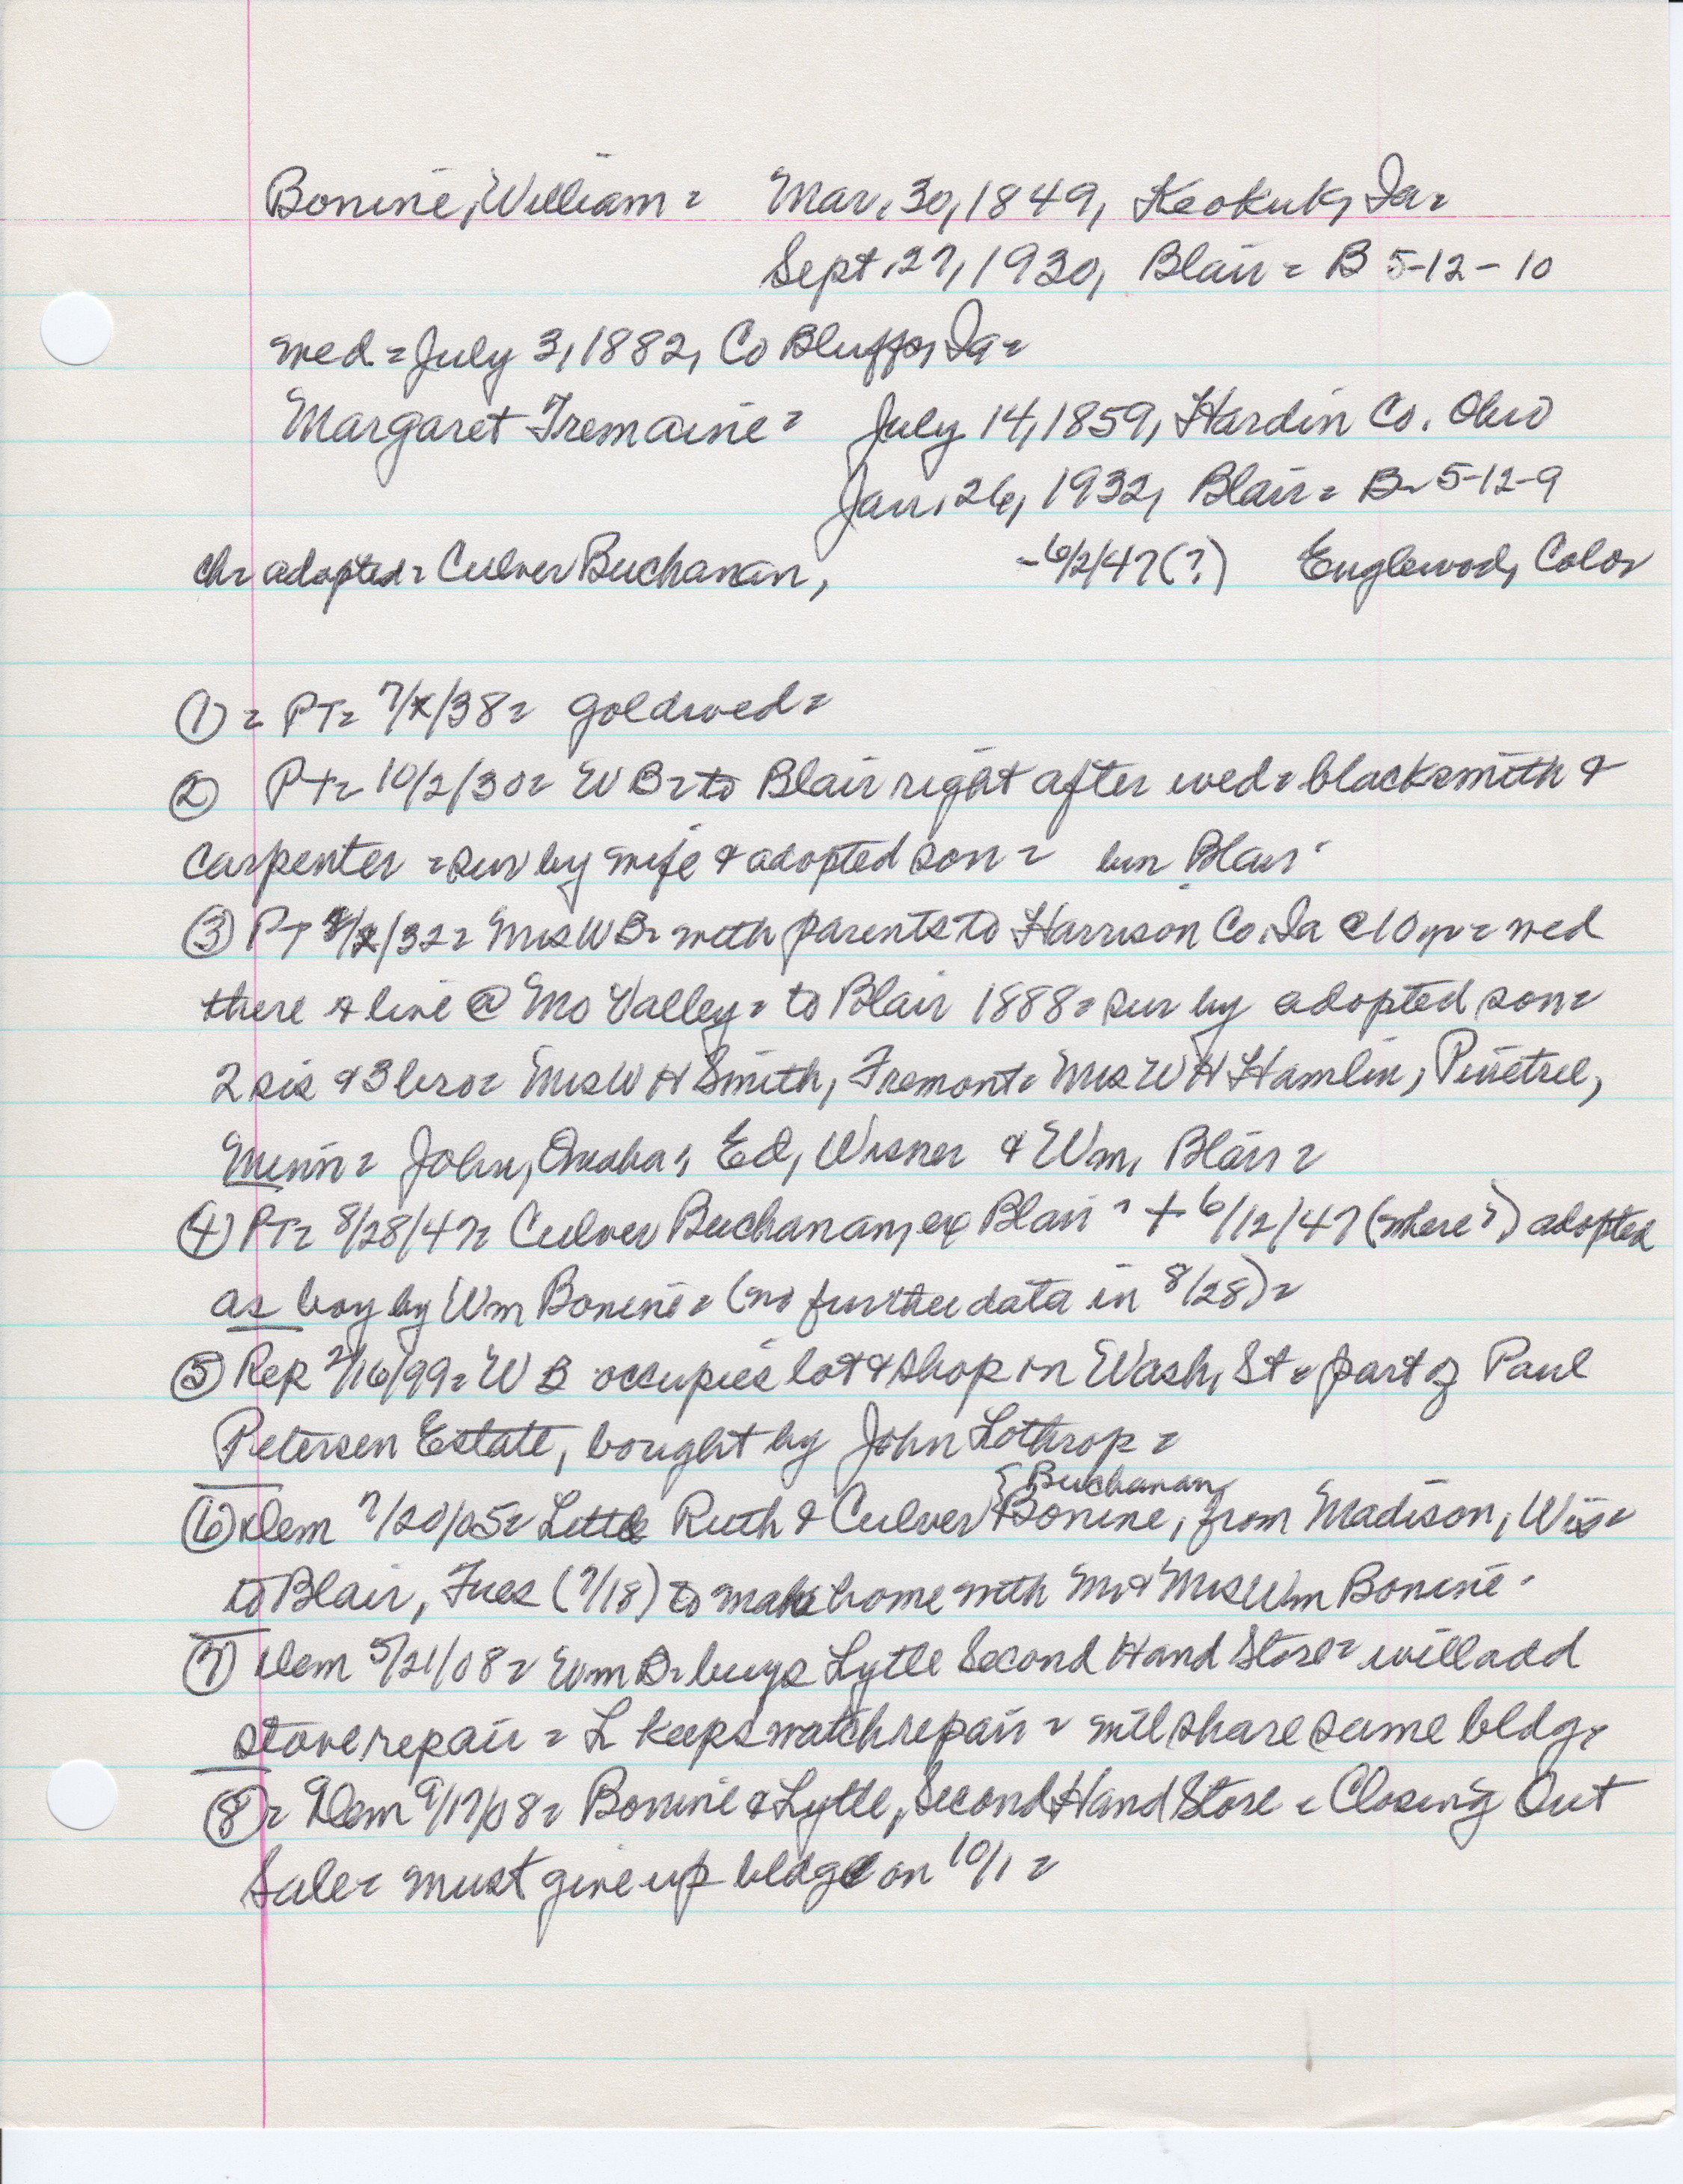 Bonine, William = Mar, 30, 1849, Keokuk, Ia =
Sept, 27, 1930, Blair = B 5-12-10
wed = July 3, 1882, Co Bluffs, Ia =
Margaret Tremaine = July 14, 1859, Hardin Co. Ohio
Jan, 26, 1932, Blair = B = 5-12-9
ch = adopted = Culver Buchanan, - 6/2/47 (?) Englewood, Color
① = PT = 7/x/38 = goldwed =
② PT = 10/2/30 = W B = to Blair right after wed = blacksmith &
carpenter = sur by wife & adopted son = bur Blair =
③ PT /32 = Mrs W B = with parents to Harrison Co. Ia @ 10 yr = wed
there & live @ Mo Valley = to Blair 1888 = sur by adopted son =
2 sis & 3 bro = Mrs W H Smith, Fremont = Mrs W H Hamlin, Pinetree,
Minn = John, Omaha, Ed, Wisner & Wm, Blair =
④ PT = 8/28/47 = Culver Buchanan, ex Blair = + 6/12/47 (where?) adopted
as boy by Wm Bonine = (no further data in 8/28) =
⑤ Rep 2/16/99 = W B occupies lot & shop in Wash, St = part of Paul
Petersen Estate, bought by John Lothrop =
Buchanan
⑥ Dem 7/20/05 = Little Ruth & Culver { Bonine, from Madison, Wis =
to Blair, Tues (7/18) to make home with Mr & Mrs Wm Bonine =
⑦ Dem 5/21/08 = Wm B = buys Lytle Second Hand Store = will add
stove repair = L keeps watch repair = will share same bldg =
⑧ = Dem 9/17/08 = Bonine & Lytle, Second Hand Store = Closing Out
Sale = must give up bldg on 10/1 =